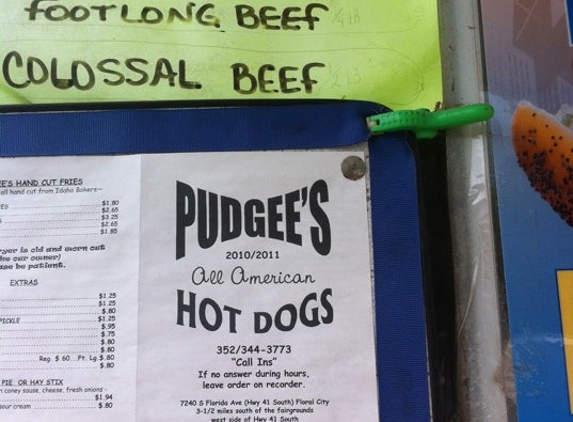 FOOTLONG BEEF 1/4 lb
COLOSSAL BEEF
EE'S HAND CUT FRIES
all hand cut from Idaho Bakers—
ES $1.80
$2.65
S $3.25
$2.65
$1.85
ryer is old and worn out
ke our owner)
ase be patient.
EXTRAS
$1.25
$1.25
$.80
PICKLE $1.25
$.95
$.75
$.80
$.80
Reg. $.60 Pt. Lg $.80
$.80
PIE OR HAY STIX
n coney sauce, cheese, fresh onions -
$1.94
sour cream $.80
PUDGEE'S
2010/2011
All American
HOT DOGS
352/344-3773
"Call Ins"
If no answer during hours,
leave order on recorder.
7240 S Florida Ave (Hwy 41 South) Floral City
3-1/2 miles south of the fairgrounds
west side of Hwy 41 South